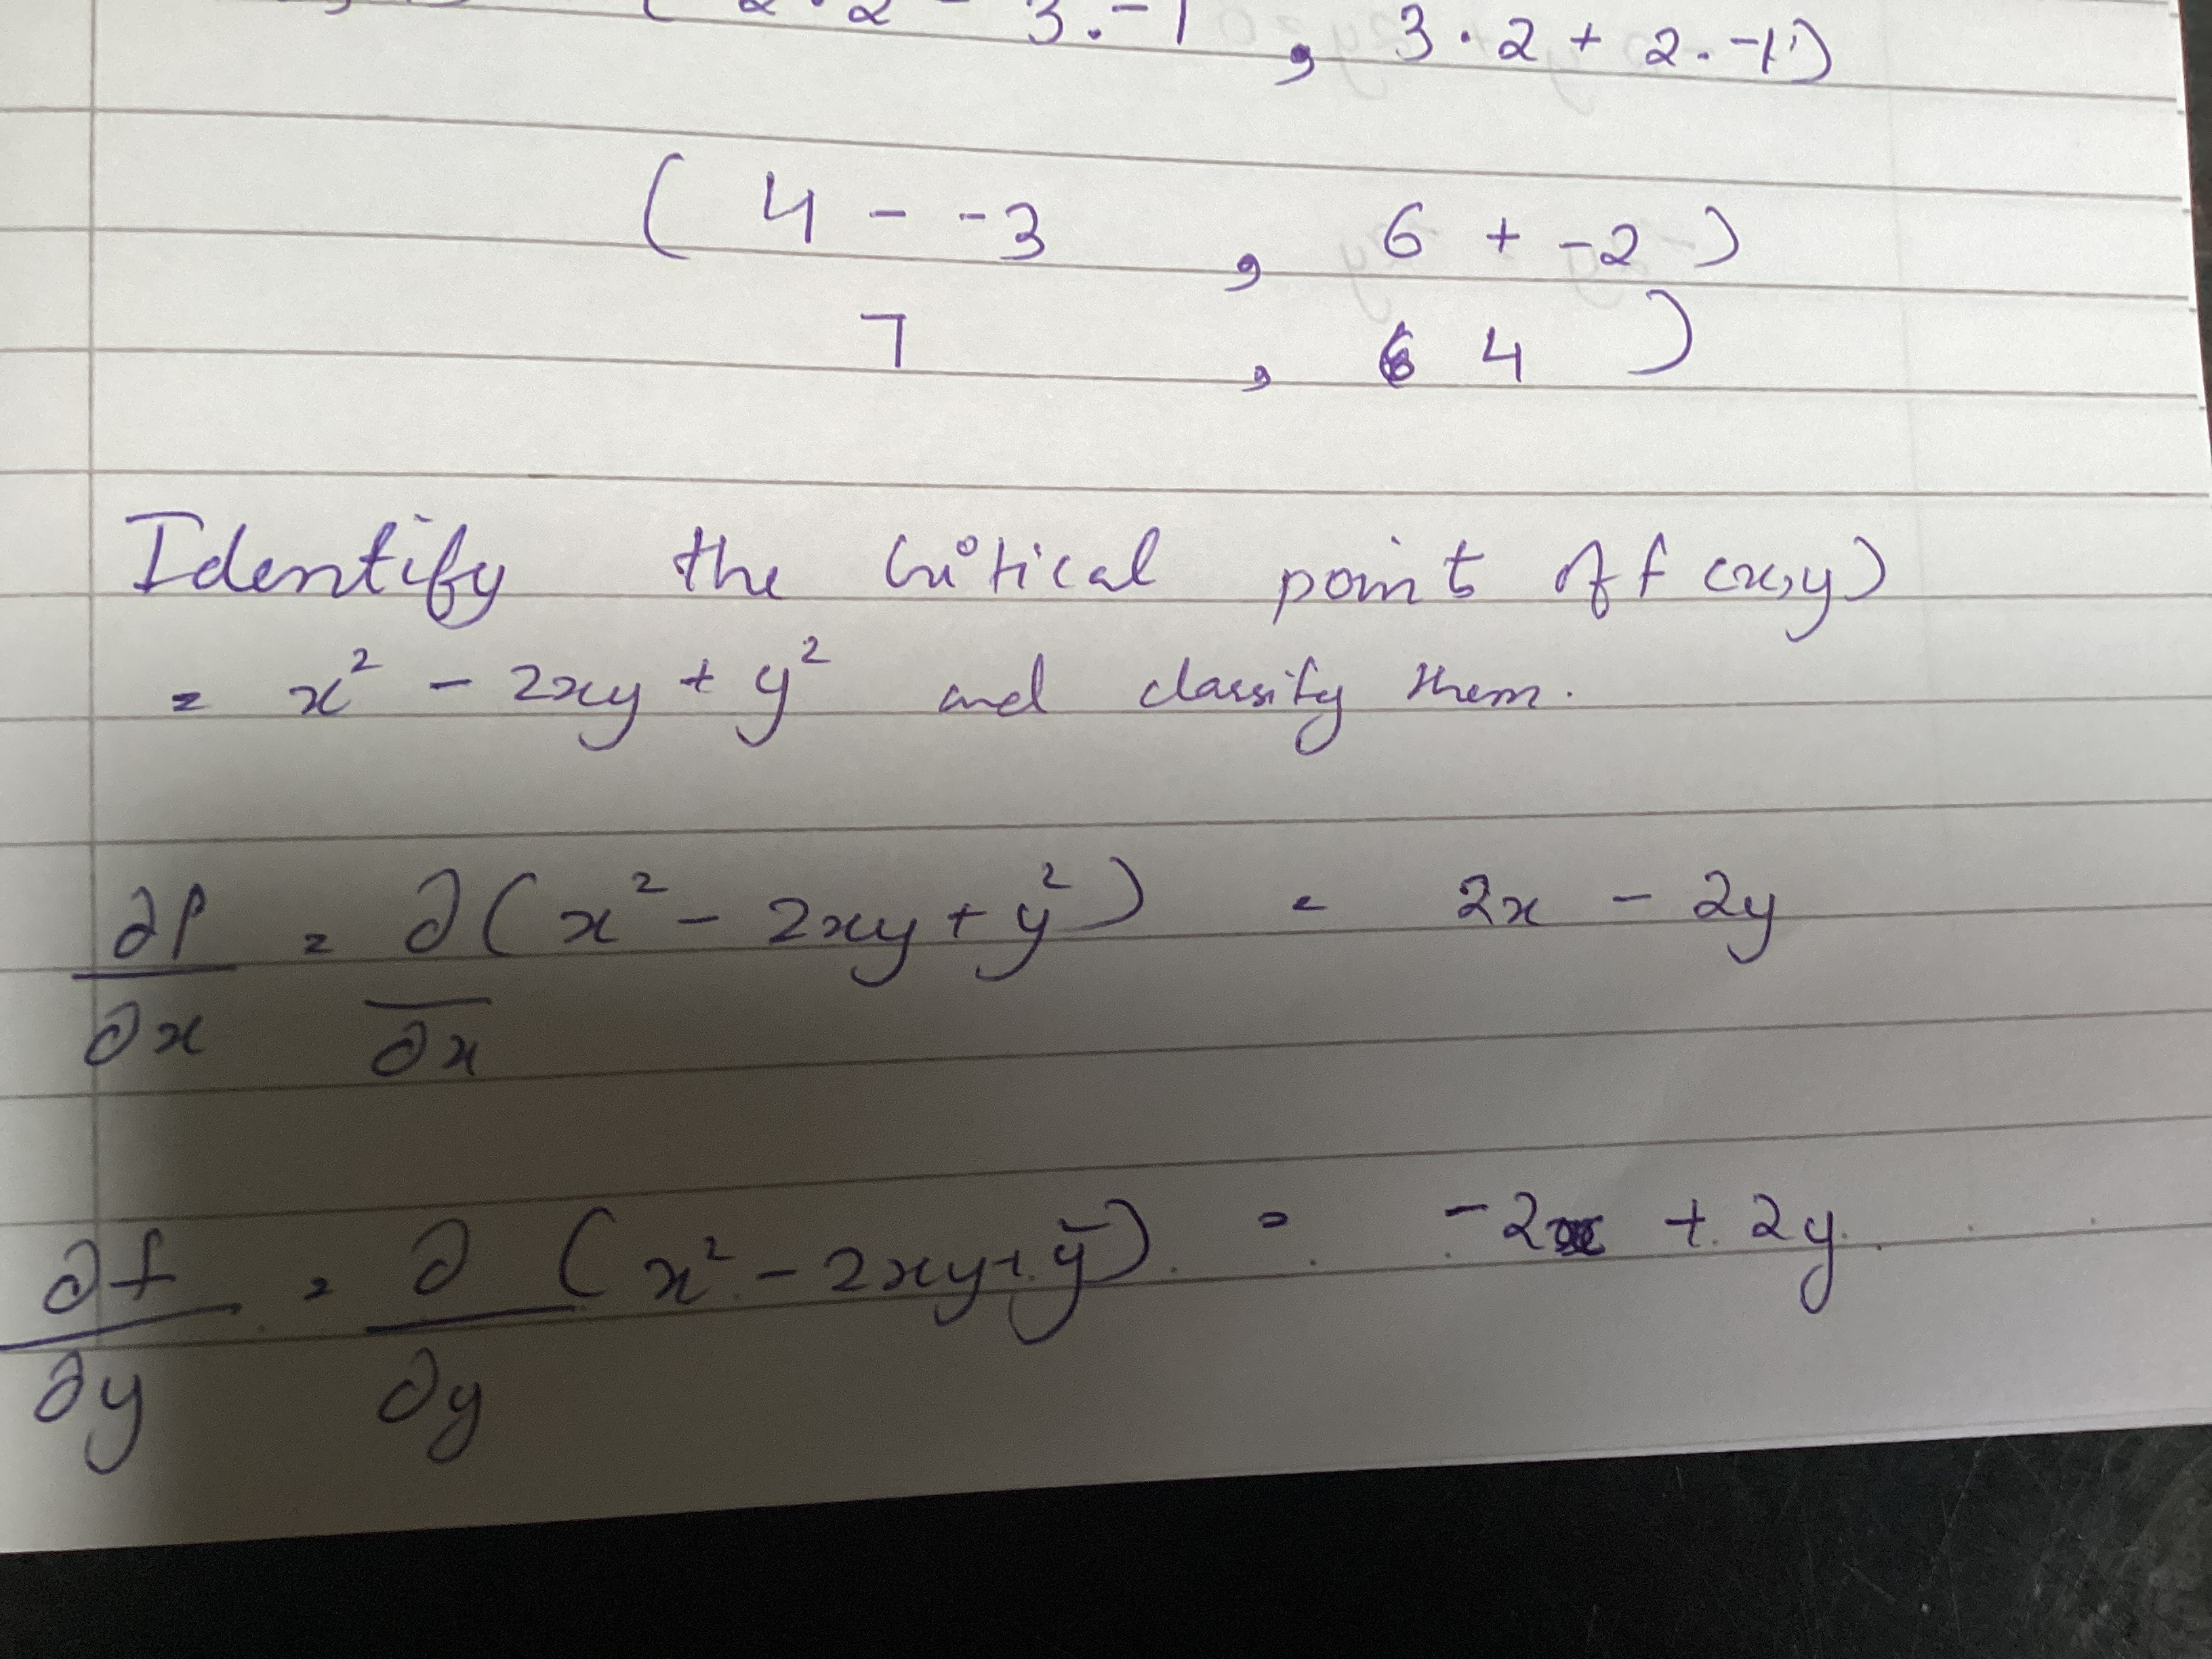 ( 2.2 - 3.-1 , 3.2 + 2.-1)
( 4 - -3 , 6 + -2 )
7 , 4 )
Identify the critical point of f(x,y)
= x² - 2xy + y² and classify them.
∂f/∂x = ∂(x² - 2xy + y²)/∂x = 2x - 2y
∂f/∂y = ∂/∂y (x² - 2xy + y²) = -2x + 2y